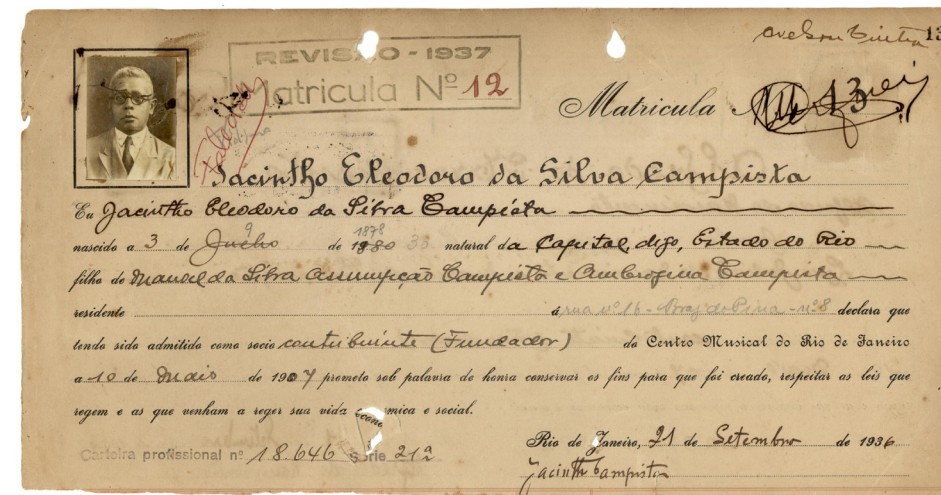 REVISÃO - 1937
Matricula Nº 12
13
Matricula
Jacintho Eleodoro da Silva Campista
Eu Jacintho Eleodoro da Silva Campista
nascido a 3 de de 1880 1878 natural da Capital, digo, Estado do Rio
filho de Manoel da Silva Assumpção Campista e Ambrosina Campista
residente á rua nº 16 - Braz de Pina - nº 8 declara que
tendo sido admitido como socio contribuinte (Fundador) do Centro Musical do Rio de Janeiro
a 10 de Maio de 1907 prometo sob palavra de honra conservar os fins para que foi creado, respeitar as leis que
regem e as que venham a reger sua vida economica e social.
Rio de Janeiro, 21 de Setembro de 1936
Carteira profissional nº 18.646 Serie 21ª
Jacintho Campista